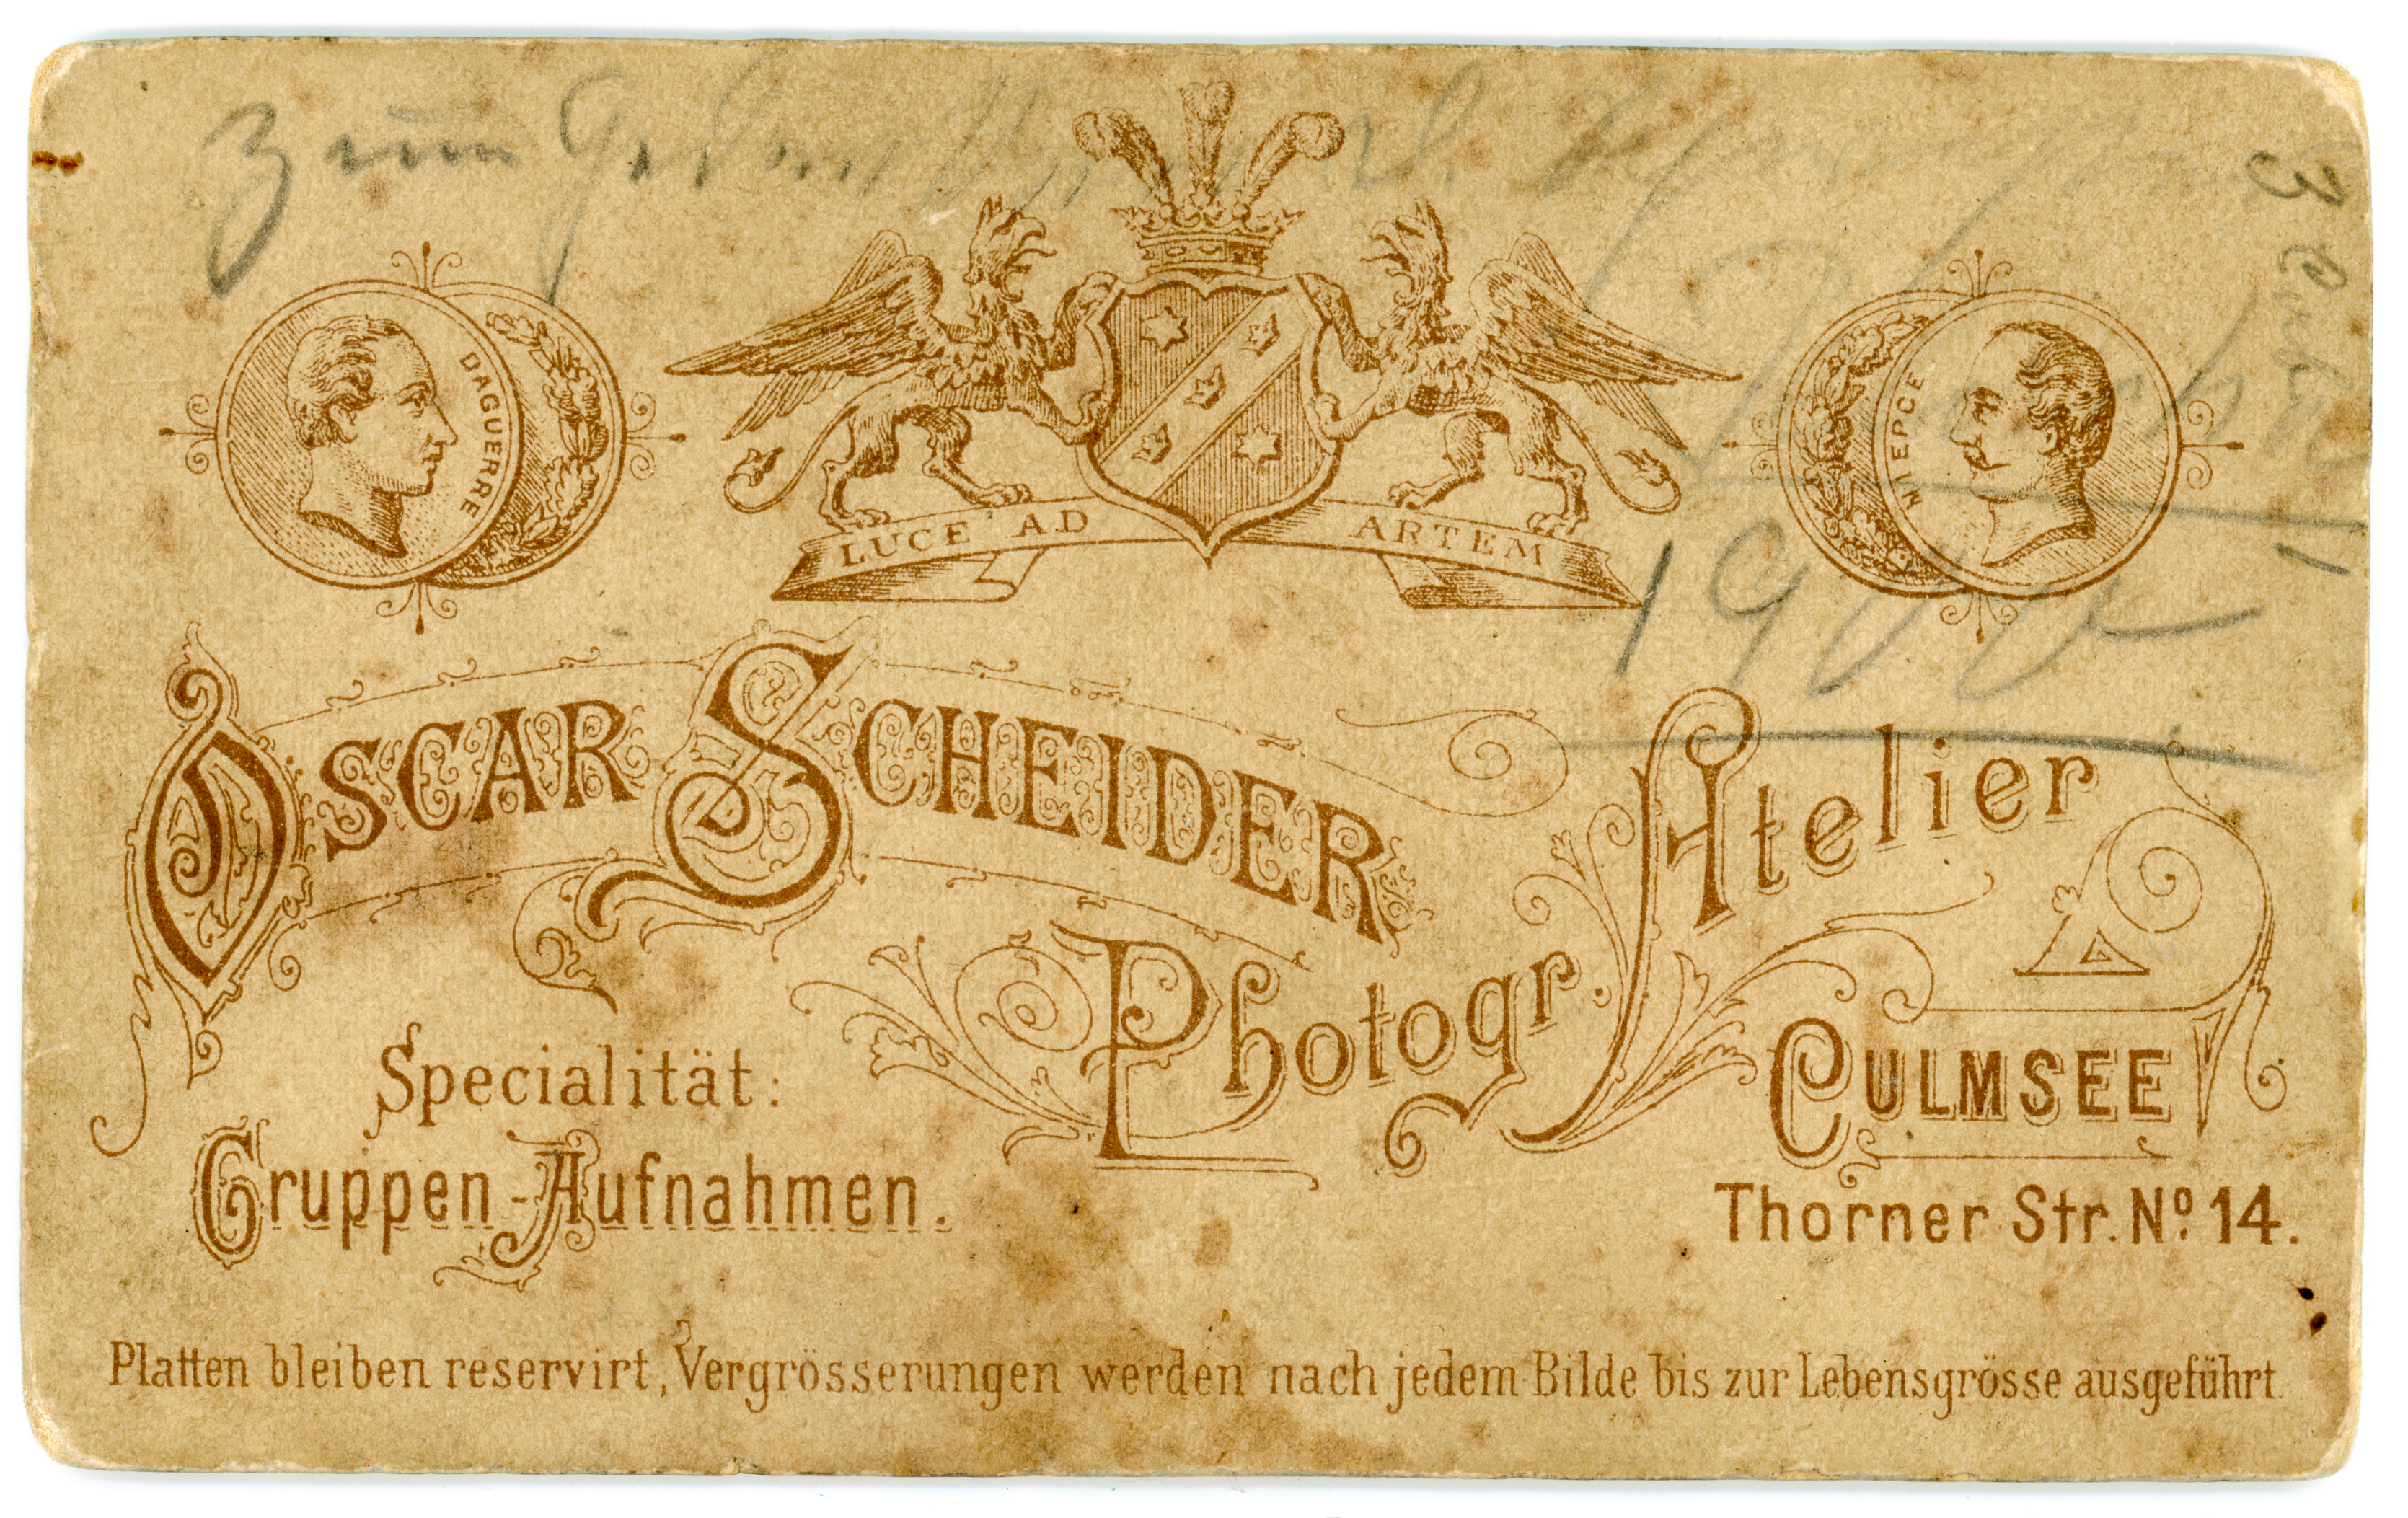 Zum
DAGUERRE
NIEPCE
LUCE AD ARTEM
1900
OSCAR SCHEIDER
Photogr. Atelier
CULMSEE
Thorner Str. No 14.
Specialität:
Gruppen-Aufnahmen.
Platten bleiben reservirt, Vergrösserungen werden nach jedem Bilde bis zur Lebensgrösse ausgeführt.